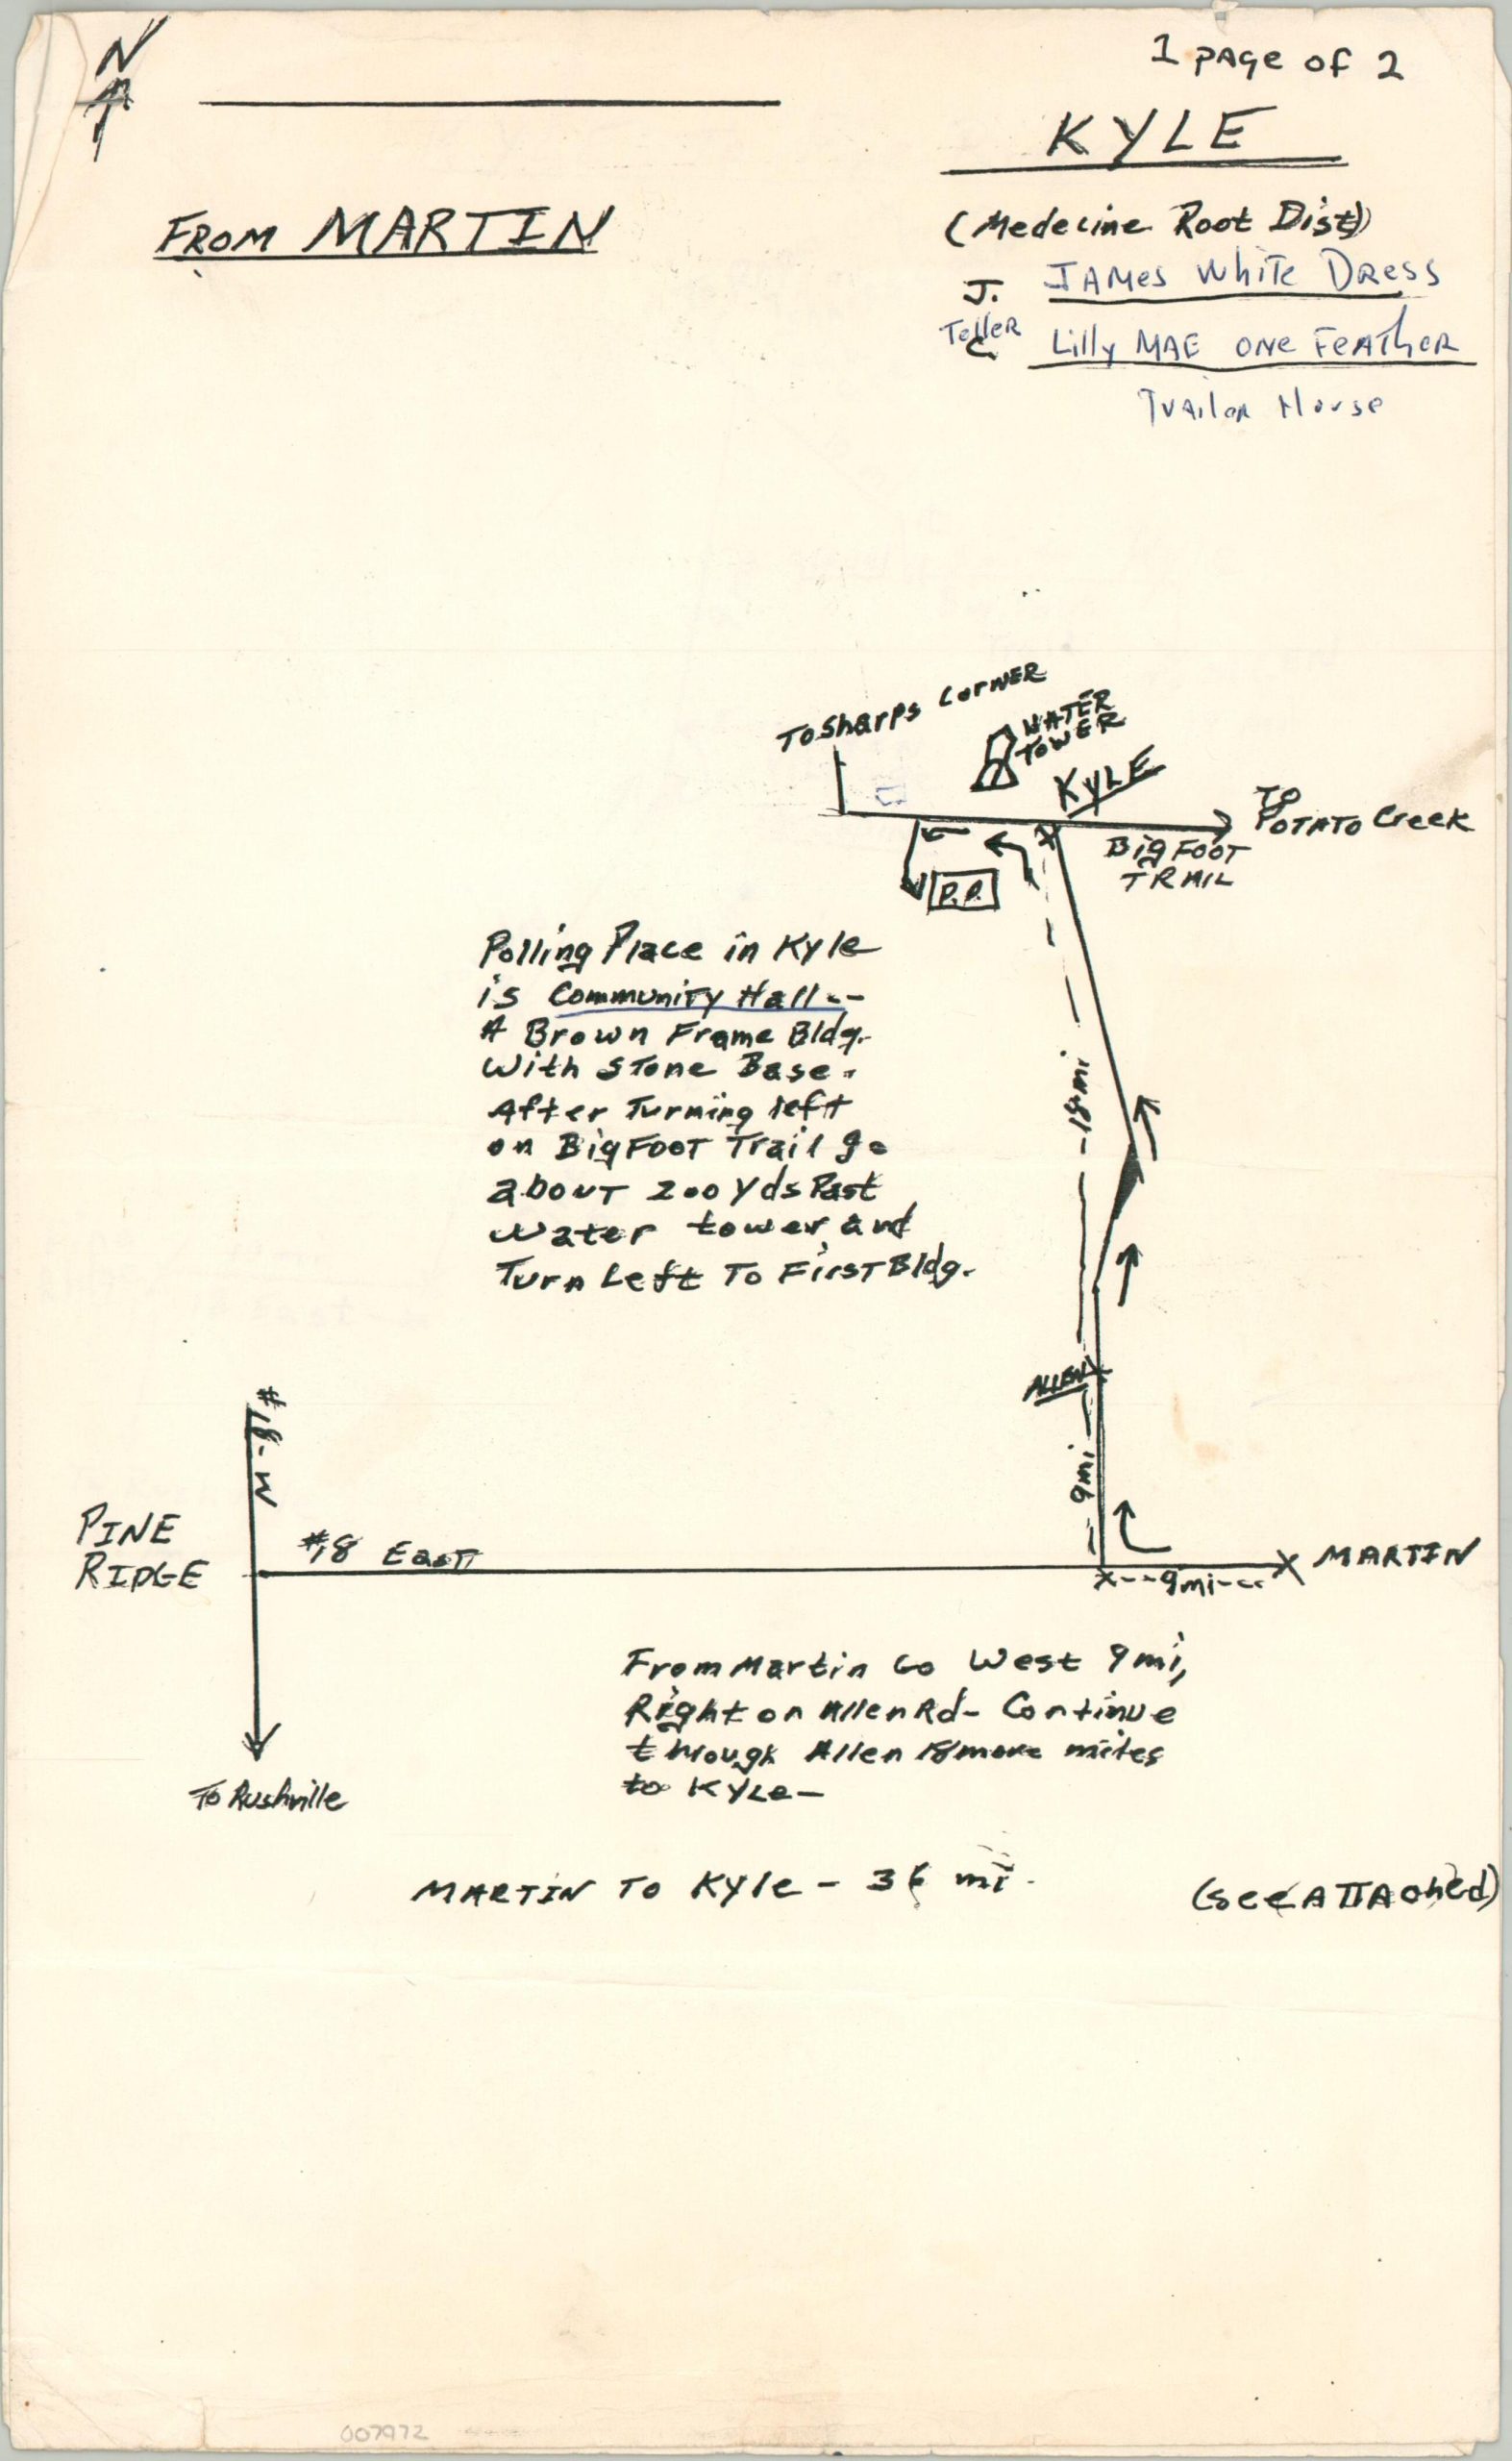 N
1 PAGE of 2
KYLE
FROM MARTIN
(Medecine Root Dist)
J. JAMes White Dress
Teller
C. Lilly MAE ONe FeATheR
Trailer House
To Sharps Corner
WATER
TOWER
KYLE
TO
POTATO Creek
BigFOOT
TRAIL
P.P.
Polling Place in Kyle
is Community Hall--
A Brown Frame Bldg.
With STone Base.
After Turning left
on BigFOOT Trail go
about 200 Yds Past
Water tower and
Turn Left To FirsT Bldg.
18mi
ALLEN
9mi
#18-N
PINE
RIDGE
#18 East
MARTIN
9mi
To Rushville
From Martin Go West 9mi,
Right on Allen Rd- Continue
through Allen 18 more miles
to Kyle-
MARTIN TO Kyle - 36 mi.
(See ATTAched)
007972